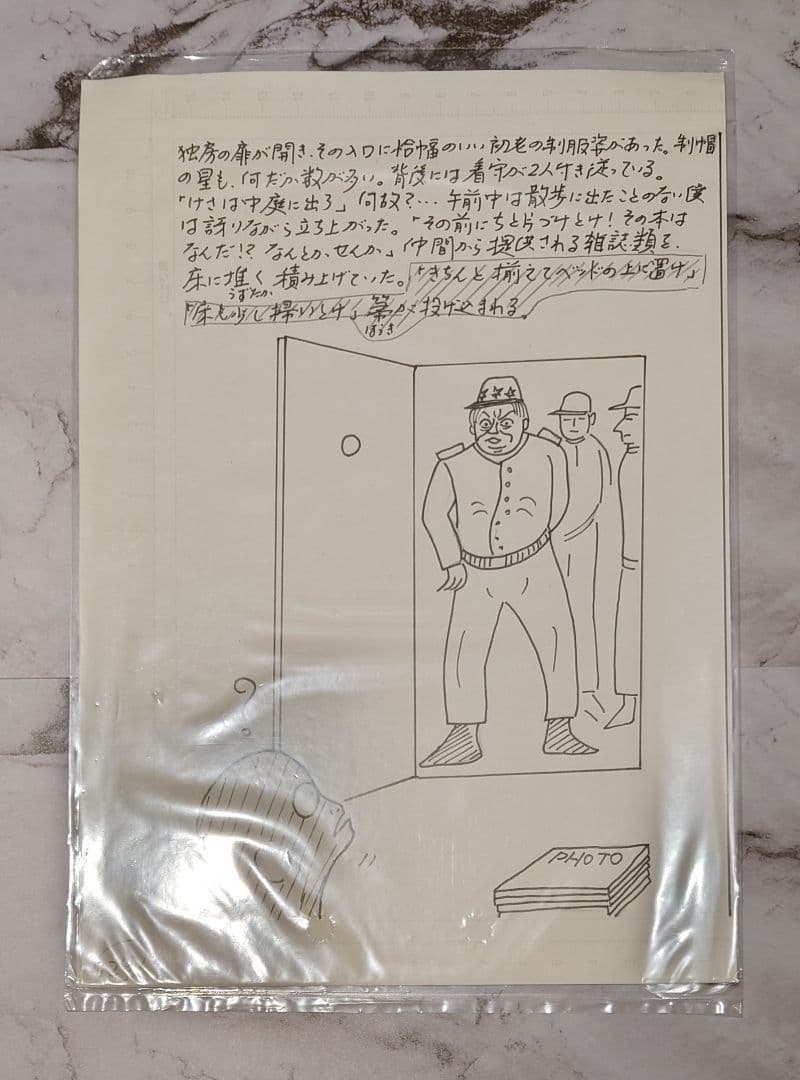 独房の扉が開き、その入口に恰幅のいい初老の制服姿があった。制帽
の星も、何だか数が多い。背後には看守が2人付き従っている。
「けさは中庭に出ろ」何故?…午前中は散歩に出たことのない僕
は訝りながら立ち上がった。「その前にちと片づけとけ!その本は
なんだ!?なんとか、せんか」仲間から提供される雑誌類を、
床に堆く積み上げていった。「きちんと揃えてベッドの上に置け」
うずたか
「床も少し掃いとけ」箒が投げ込まれる。
ほうき
?
PHOTO